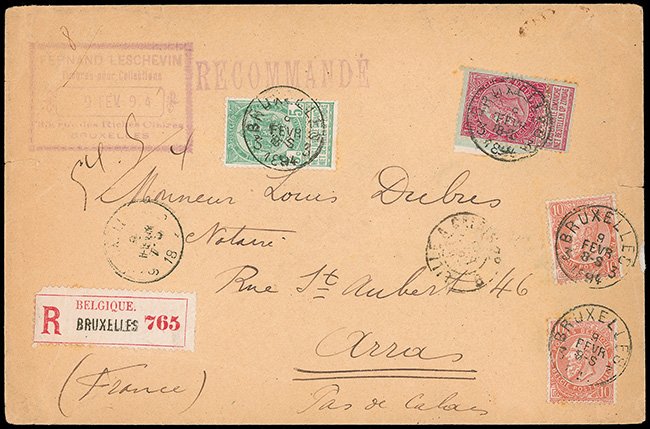 8
FERNAND LESCHEVIN
Timbres pour Collections
9 FEV 94
Rue des Riches Claires
BRUXELLES
RECOMMANDÉ
BRUXELLES
9
FEVR
8-S
1894
BRUXELLES
9
FEVR
8-S
1894
Monsieur Louis Dubres
Notaire
Rue St Aubert 46
Arras
Pas de Calais
(France)
10
BRUXELLES
9
FEVR
8-S
94
BRUXELLES
9
FEVR
8-S
10
R
BELGIQUE.
BRUXELLES 765